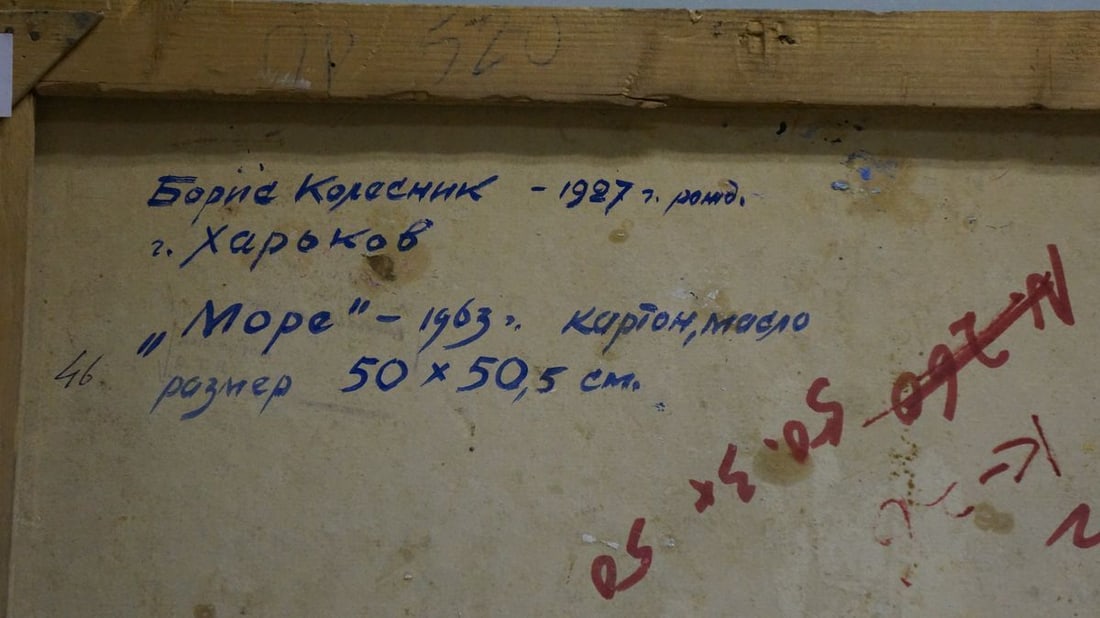 520
Борис Колесник - 1927 г. рожд.
г. Харьков
„Море" - 1963 г. картон, масло
46.
размер 50 × 50,5 см.
50.3 × 50